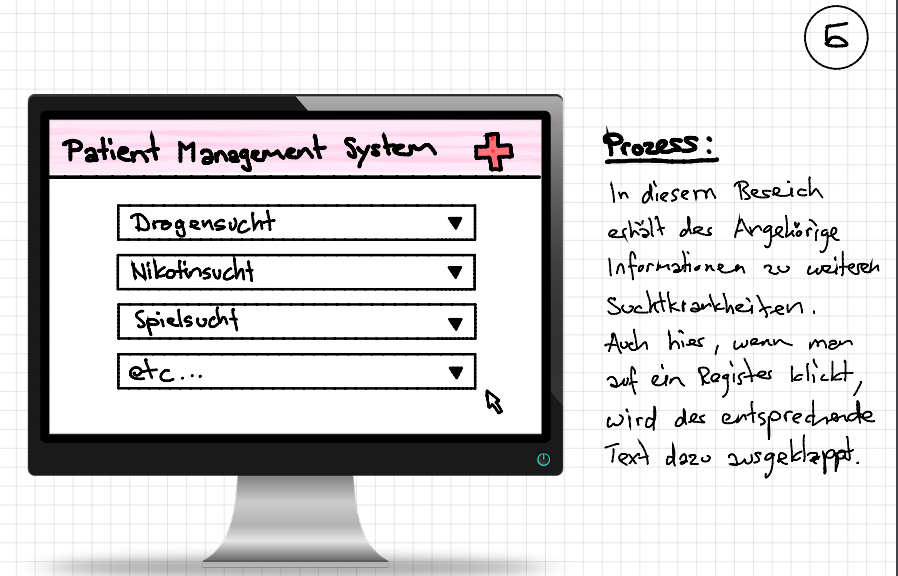 5
Patient Management System
Drogensucht
Nikotinsucht
Spielsucht
etc...
Prozess:
In diesem Bereich
erhält der Angehörige
Informationen zu weiteren
Suchtkrankheiten.
Auch hier, wenn man
auf ein Register klickt,
wird der entsprechende
Text dazu ausgeklappt.